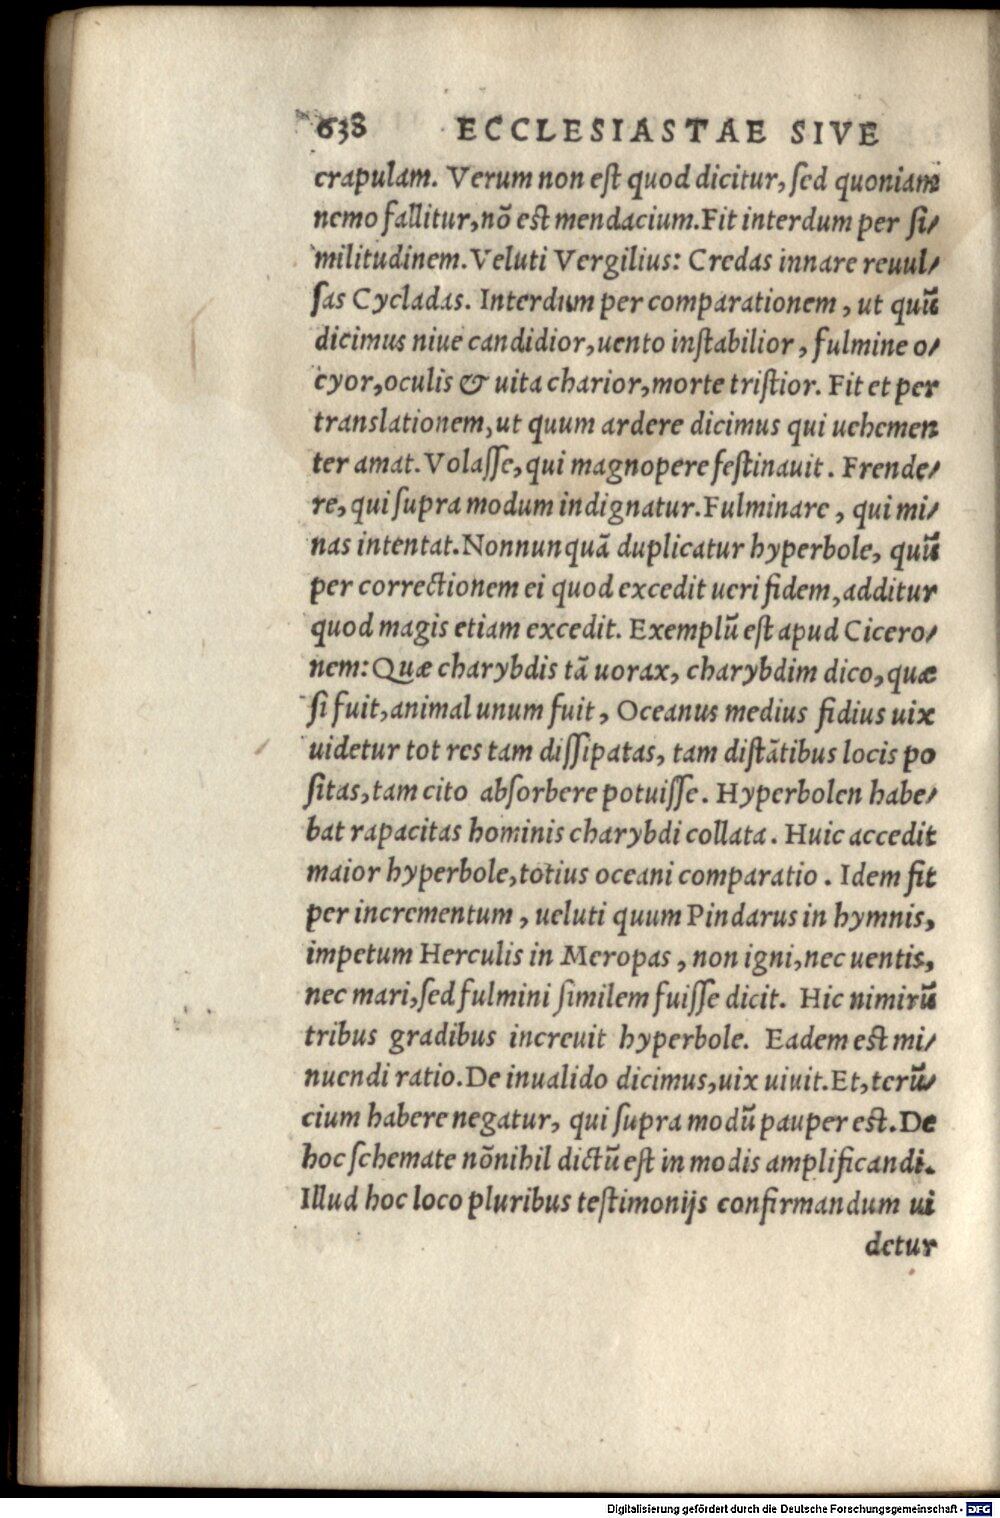 638 ECCLESIASTAE SIVE
crapulam. Verum non eſt quod dicitur, ſed quoniam
nemo fallitur, nõ eſt mendacium. Fit interdum per ſi/
militudinem. Veluti Vergilius: Credas innare reuul/
ſas Cycladas. Interdum per comparationem, ut quũ
dicimus niue candidior, uento inſtabilior, fulmine o/
cyor, oculis & uita charior, morte triſtior. Fit et per
translationem, ut quum ardere dicimus qui uehemen
ter amat. Volaſſe, qui magnopere feſtinauit. Frende/
re, qui ſupra modum indignatur. Fulminare, qui mi/
nas intentat. Nonnunquã duplicatur hyperbole, quũ
per correctionem ei quod excedit ueri fidem, additur
quod magis etiam excedit. Exemplũ eſt apud Cicero/
nem: Quæ charybdis tã uorax, charybdim dico, quæ
ſi fuit, animal unum fuit, Oceanus medius fidius uix
uidetur tot res tam diſſipatas, tam diſtãtibus locis po
ſitas, tam cito abſorbere potuiſſe. Hyperbolen habe/
bat rapacitas hominis charybdi collata. Huic accedit
maior hyperbole, totius oceani comparatio. Idem fit
per incrementum, ueluti quum Pindarus in hymnis,
impetum Herculis in Meropas, non igni, nec uentis,
nec mari, ſed fulmini ſimilem fuiſſe dicit. Hic nimirũ
tribus gradibus increuit hyperbole. Eadem eſt mi/
nuendi ratio. De inualido dicimus, uix uiuit. Et, terũ/
cium habere negatur, qui ſupra modũ pauper eſt. De
hoc ſchemate nõnihil dictũ eſt in modis amplificandi.
Illud hoc loco pluribus teſtimonijs confirmandum ui
detur
Digitalisierung gefördert durch die Deutsche Forschungsgemeinschaft - DFG